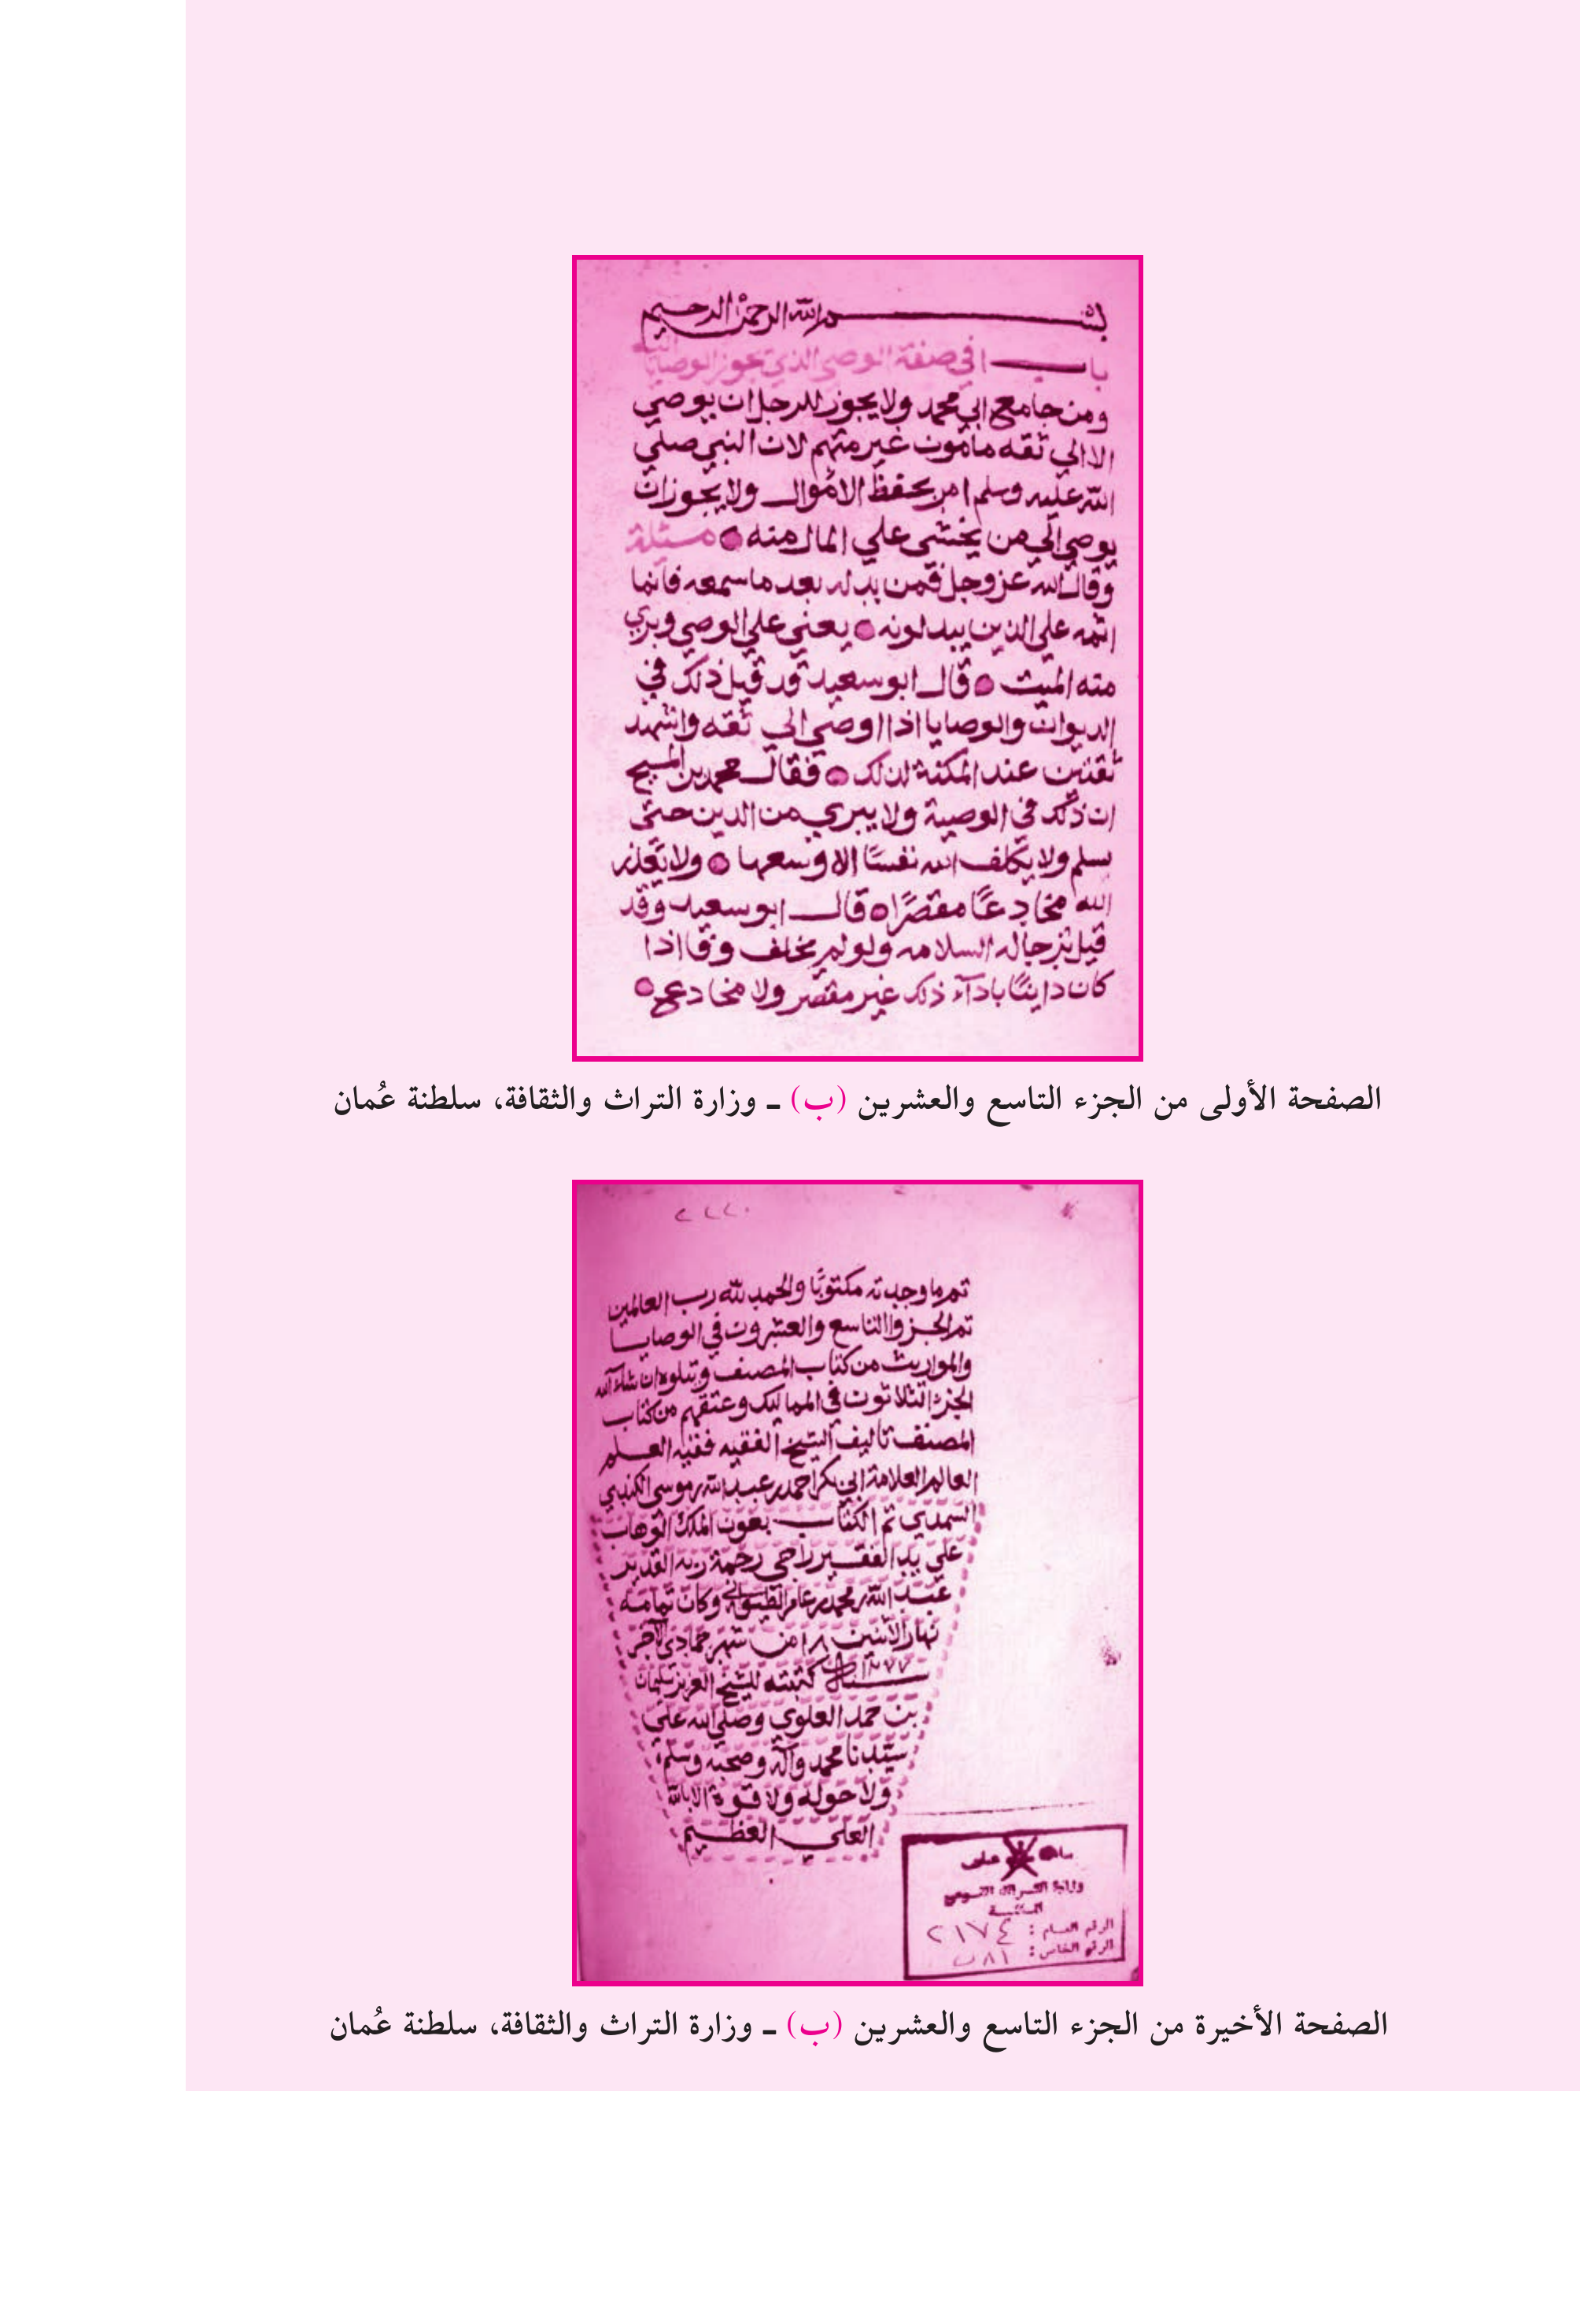 بسم الله الرحمن الرحيم
باب في صفة الوصي الذي تجوز الوصايا إليه
ومن جامع ابي محمد ولا يجوز للرجل ان يوصي
الا الي ثقه مامون غير متهم لان النبي صلي
الله عليه وسلم امر بحفظ الاموال ولا يجوز ان
يوصي الي من يخشي علي المال منه مسئلة
وقال الله عز وجل فمن بدله بعد ما سمعه فانما
اثمه علي الذين يبدلونه يعني علي الوصي وبري
منه الميت قال ابو سعيد قد قيل ذلك في
الديون والوصايا اذا اوصي الي ثقه واشهد
ثقتين عند المكنة لذلك فقال محمد بن المسبح
ان ذلك في الوصية ولا يبري من الدين حتى
يسلم ولا يكلف الله نفسًا الا وسعها ولا يعذر
الله مخادعًا مقصرًا قال ابو سعيد وقد
قيل يرجا له السلامه ولو لم يخلف وفا اذا
كان داينًا باداء ذلك غير مقصر ولا مخادع
الصفحة الأولى من الجزء التاسع والعشرين (ب) ـ وزارة التراث والثقافة، سلطنة عُمان
تم ما وجدته مكتوبًا والحمد لله رب العالمين
تم الجزو التاسع والعشرون في الوصايا
والمواريث من كتاب المصنف ويتلوه ان شاء الله
الجزء الثلاثون في المماليك وعتقهم من كتاب
المصنف تاليف الشيخ الفقيه فقيه العلم
العالم العلامة ابي بكر احمد بن عبد الله بن موسى الكندي
السمدي تم الكتاب بعون الملك الوهاب
علي يد الفقير راجي رحمة ربه القدير
عبد الله بن محمد بن عامر وكان تمامه
نهار الاثنين ١٨ من شهر جمادى الآخر
سنة كتبته للشيخ العزيز سليمان
بن حمد العلوي وصلي الله علي
سيدنا محمد وآله وصحبه وسلم
ولا حول ولا قوة الا بالله
العلي العظيم
الرقم العام : ٢١٧٤
الرقم الخاص : ٨١ ب
الصفحة الأخيرة من الجزء التاسع والعشرين (ب) ـ وزارة التراث والثقافة، سلطنة عُمان